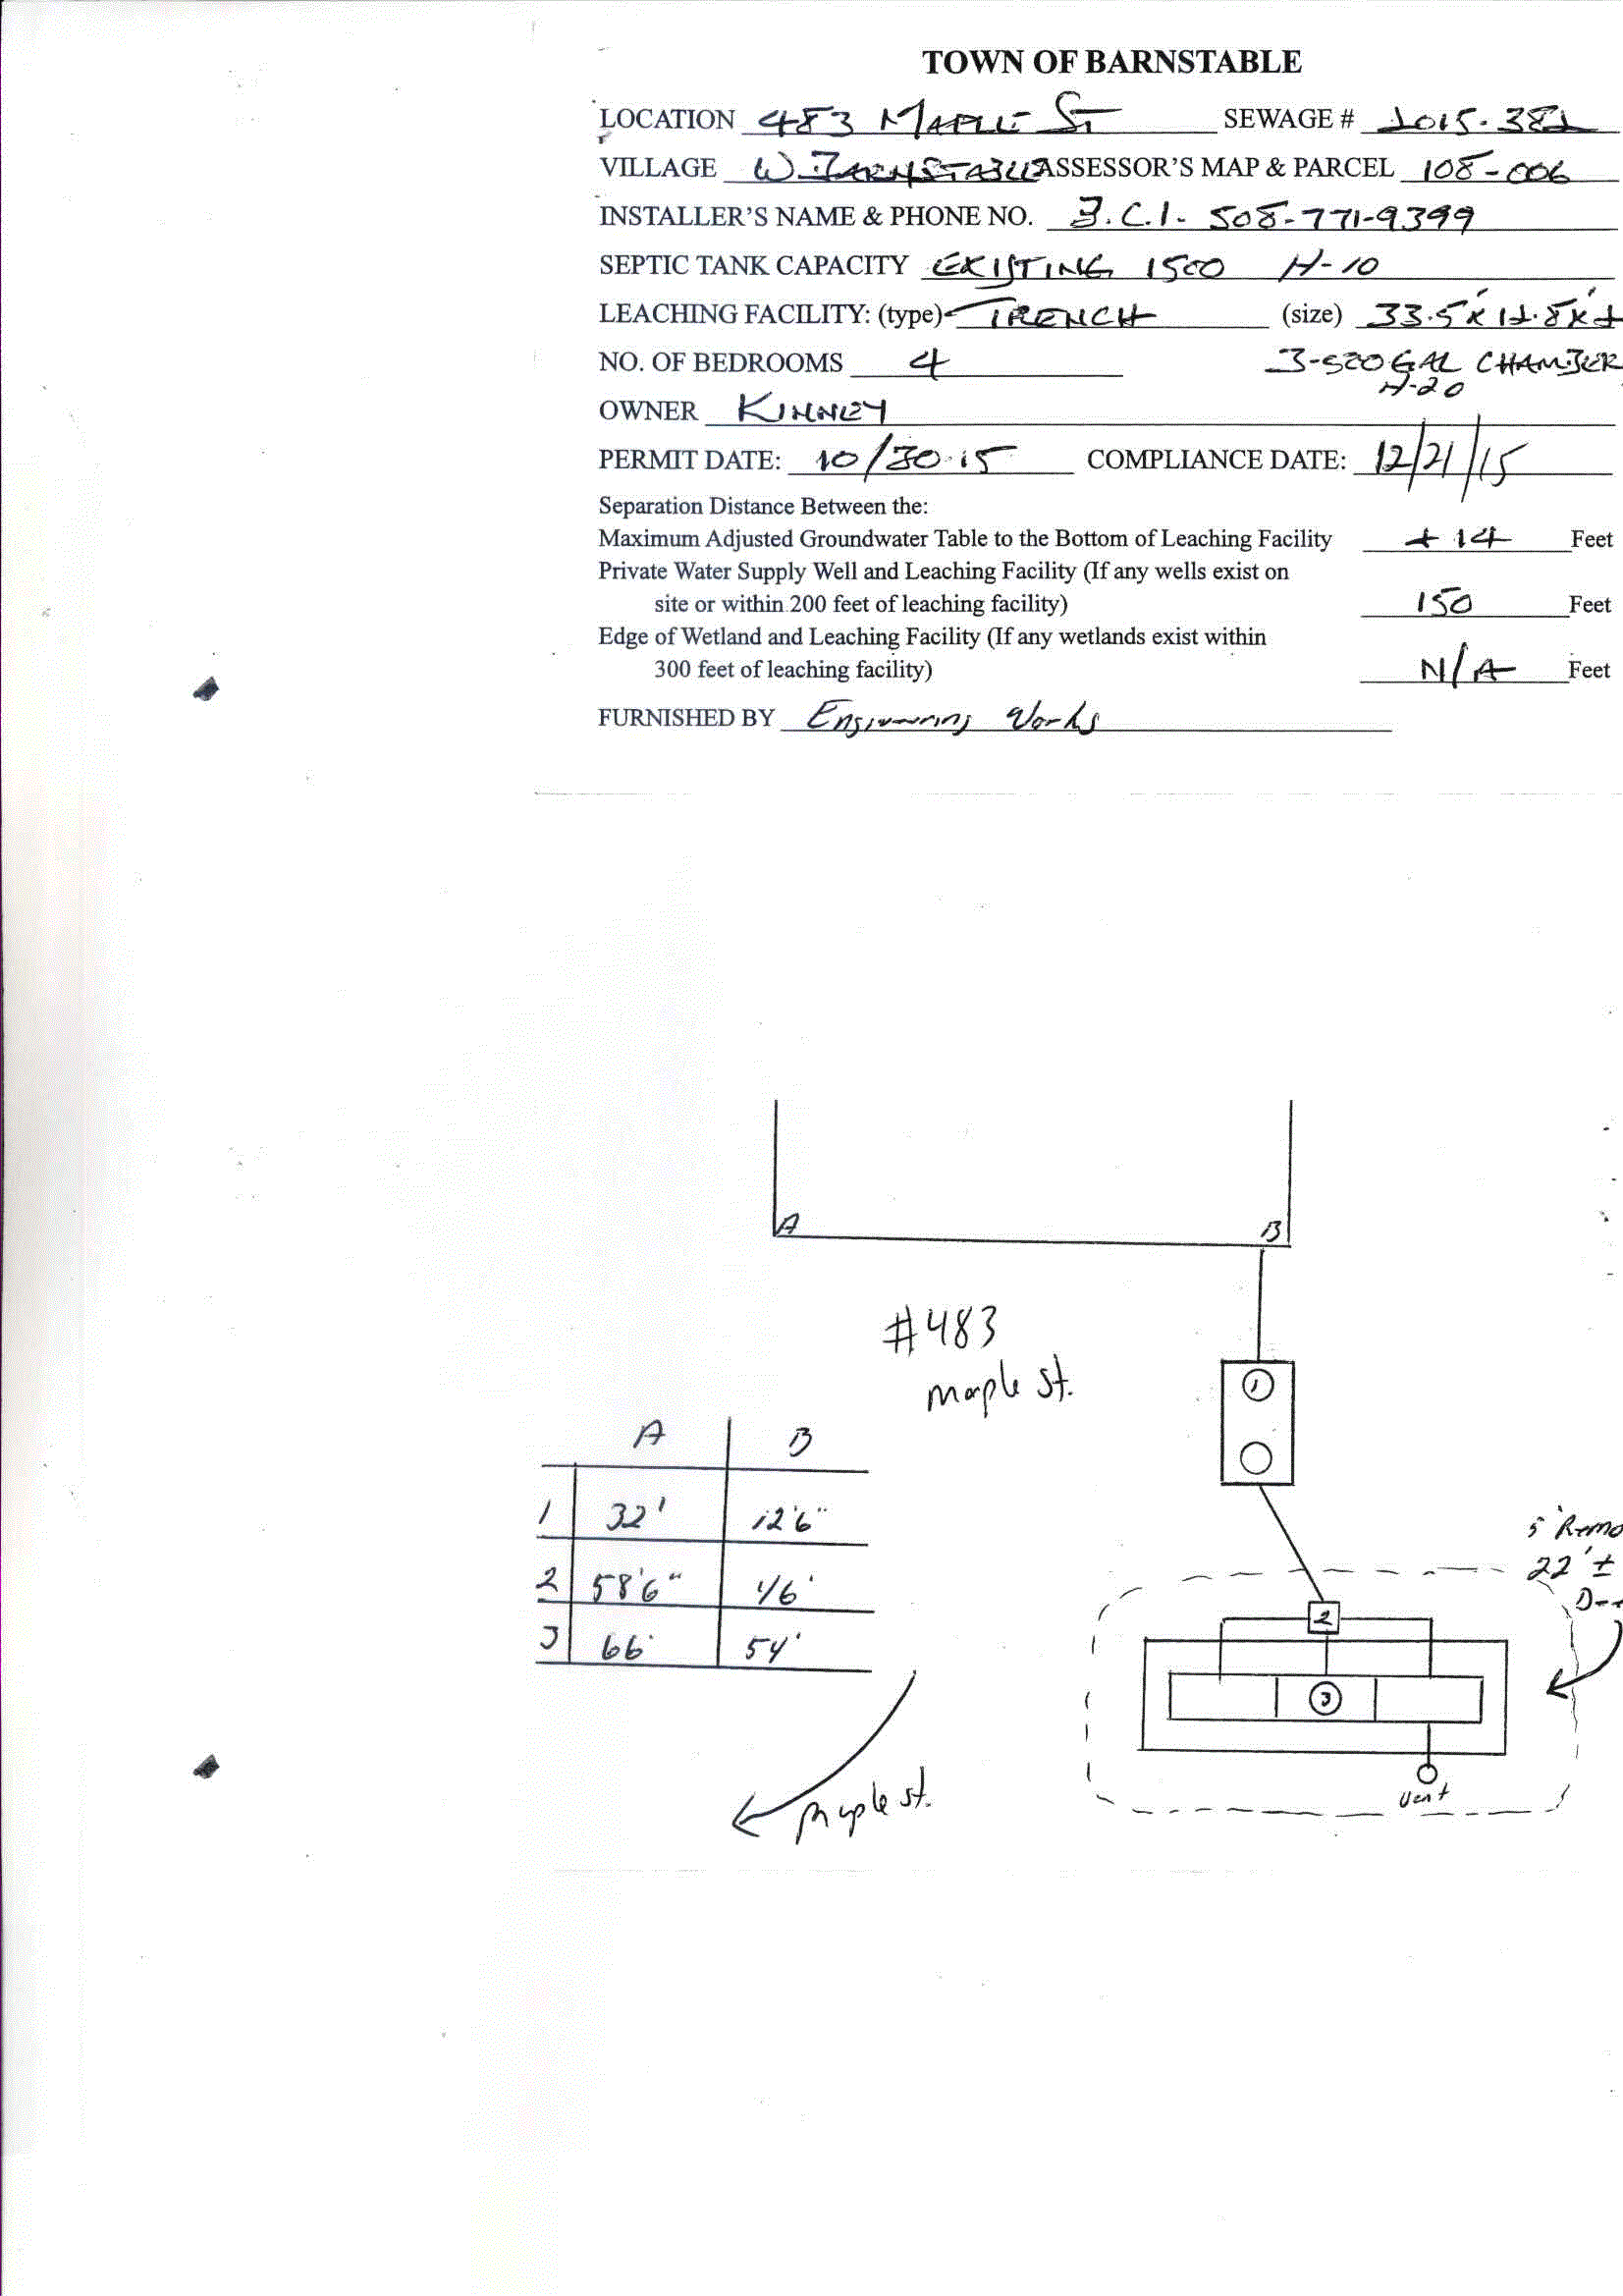 TOWN OF BARNSTABLE
LOCATION 483 MAPLE ST SEWAGE # 2015-382
VILLAGE W. BARNSTABLE ASSESSOR'S MAP & PARCEL 108-006
INSTALLER'S NAME & PHONE NO. B.C.I. 508-771-9399
SEPTIC TANK CAPACITY EXISTING 1500 H-10
LEACHING FACILITY: (type) TRENCH (size) 33.5' x 12.8' x 2
NO. OF BEDROOMS 4 3-500 GAL CHAMBER
H-20
OWNER KINNEY
PERMIT DATE: 10/30.15 COMPLIANCE DATE: 12/21/15
Separation Distance Between the:
Maximum Adjusted Groundwater Table to the Bottom of Leaching Facility +14 Feet
Private Water Supply Well and Leaching Facility (If any wells exist on
site or within 200 feet of leaching facility) 150 Feet
Edge of Wetland and Leaching Facility (If any wetlands exist within
300 feet of leaching facility) N/A Feet
FURNISHED BY Engineering Works
A B
#483
maple st.
1
A B
1 32' 12'6"
2 58'6" 46'
3 66' 54'
5' Remo
22' ±
2
3
Vent
maple st.